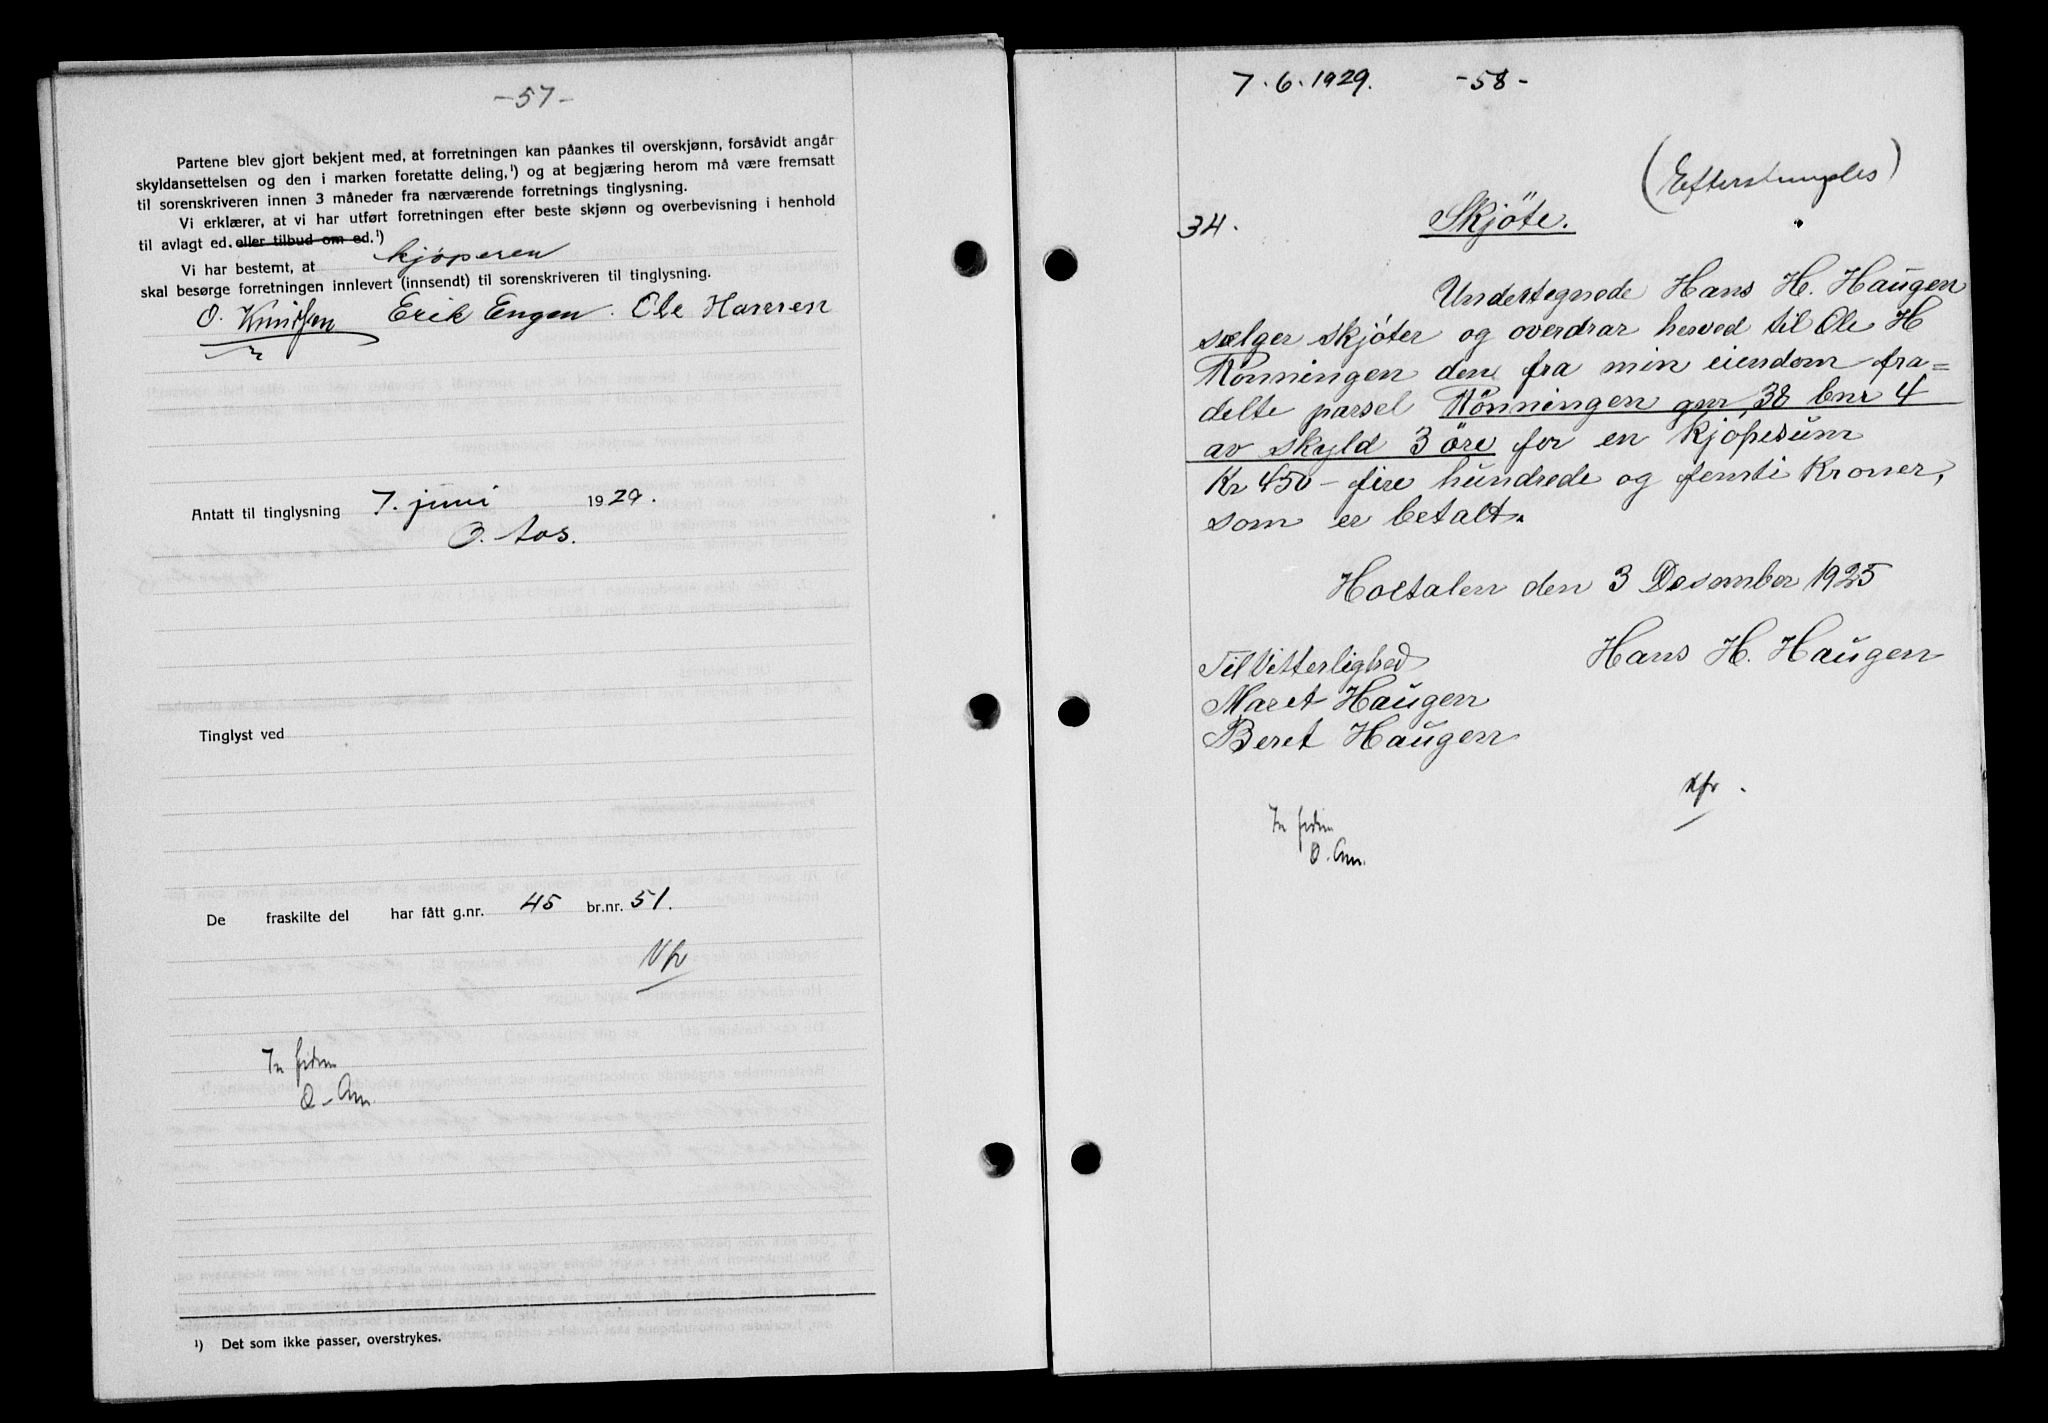 -57-
Partene blev gjort bekjent med, at forretningen kan påankes til overskjønn, forsåvidt angår
skyldansettelsen og den i marken foretatte deling,¹) og at begjæring herom må være fremsatt
til sorenskriveren innen 3 måneder fra nærværende forretnings tinglysning.
Vi erklærer, at vi har utført forretningen efter beste skjønn og overbevisning i henhold
til avlagt ed. eller tilbud om ed.¹)
Vi har bestemt, at kjøperen
skal besørge forretningen innlevert (innsendt) til sorenskriveren til tinglysning.
O. Knudsen Erik Engen. Ole Hansen
Antatt til tinglysning 7. juni 1929.
O. Aas.
Tinglyst ved
De fraskilte del har fått g.nr. 45 br.nr. 51.
In fidem
O. Am.
¹) Det som ikke passer, overstrykes.
7.6.1929. -58-
(Efterstemples)
34. Skjöte.
Undertegnede Hans H. Haugen
sælger skjöter og overdrar herved til Ole H
Rönningen den fra min eiendom fra=
delte parsel Rönningen gnr 38 bnr 4
av skyld 3 öre for en kjöpesum
Kr 450 - fire hundrede og femti Kroner,
som er betalt.
Holtalen den 3 Desember 1925
Hans H. Haugen
Til Vitterlighed
Maret Haugen
Beret Haugen
In fidem
O. Am.